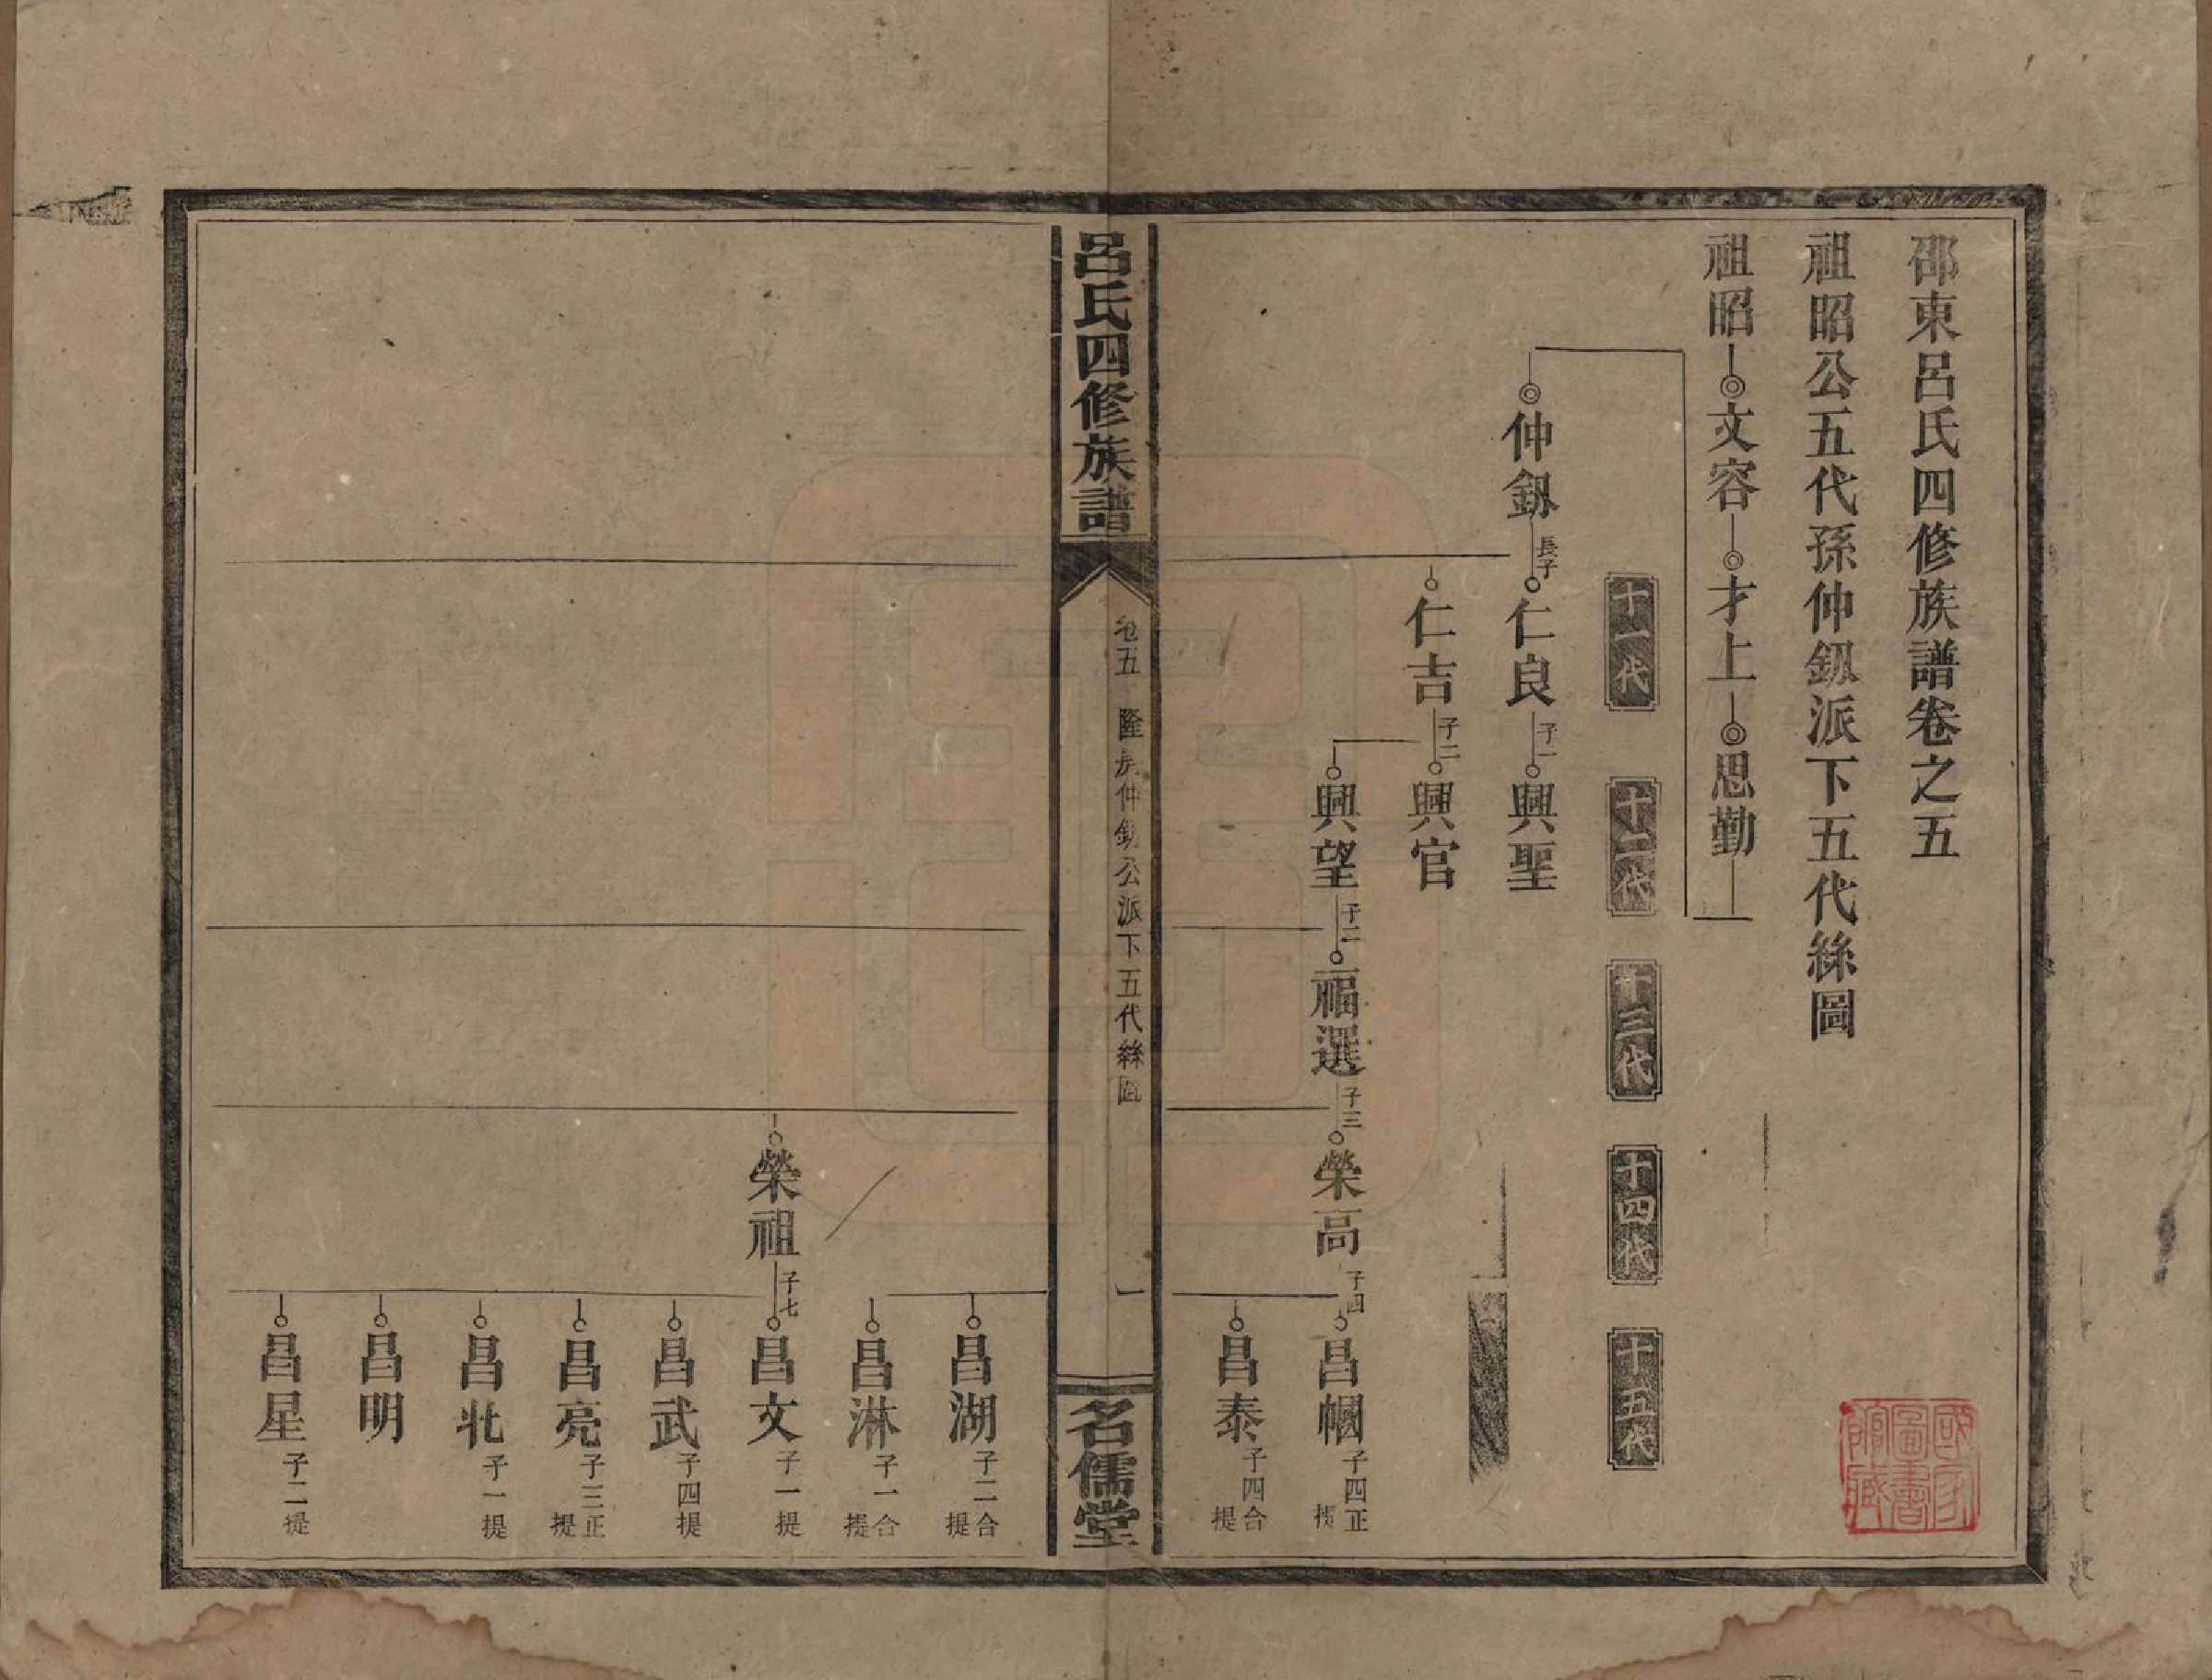 邵東呂氏四修族譜卷之五
祖昭公五代孫仲釰派下五代絲圖
祖昭 文容 才上 思勤
十一代 十二代 十三代 十四代 十五代
仲釰 長子 仁良 子一 興聖
仁吉 子二 興官
興望 子二 福選 子三 榮高 子四 昌幗 子四正提
昌泰 子四合提
呂氏四修族譜 卷五 隆房仲釰公派下五代絲圖 一 名儒堂
昌湖 子二合提
昌淋 子一合提
榮祖 子七 昌文 子一提
昌武 子四提
昌亮 子三正提
昌壯 子一提
昌明
昌星 子二提
國家圖書館藏